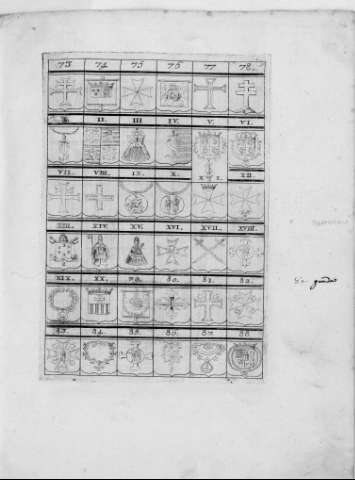 73. 74. 75 76 77 78.
II. III IV. V. VI.
VII. VIII. IX. X. XII.
XIII. XIV. XV. XVI. XVII. XVIII.
XIX. XX. 79. 80. 81. 82.
83. 84. 85. 86. 87 88